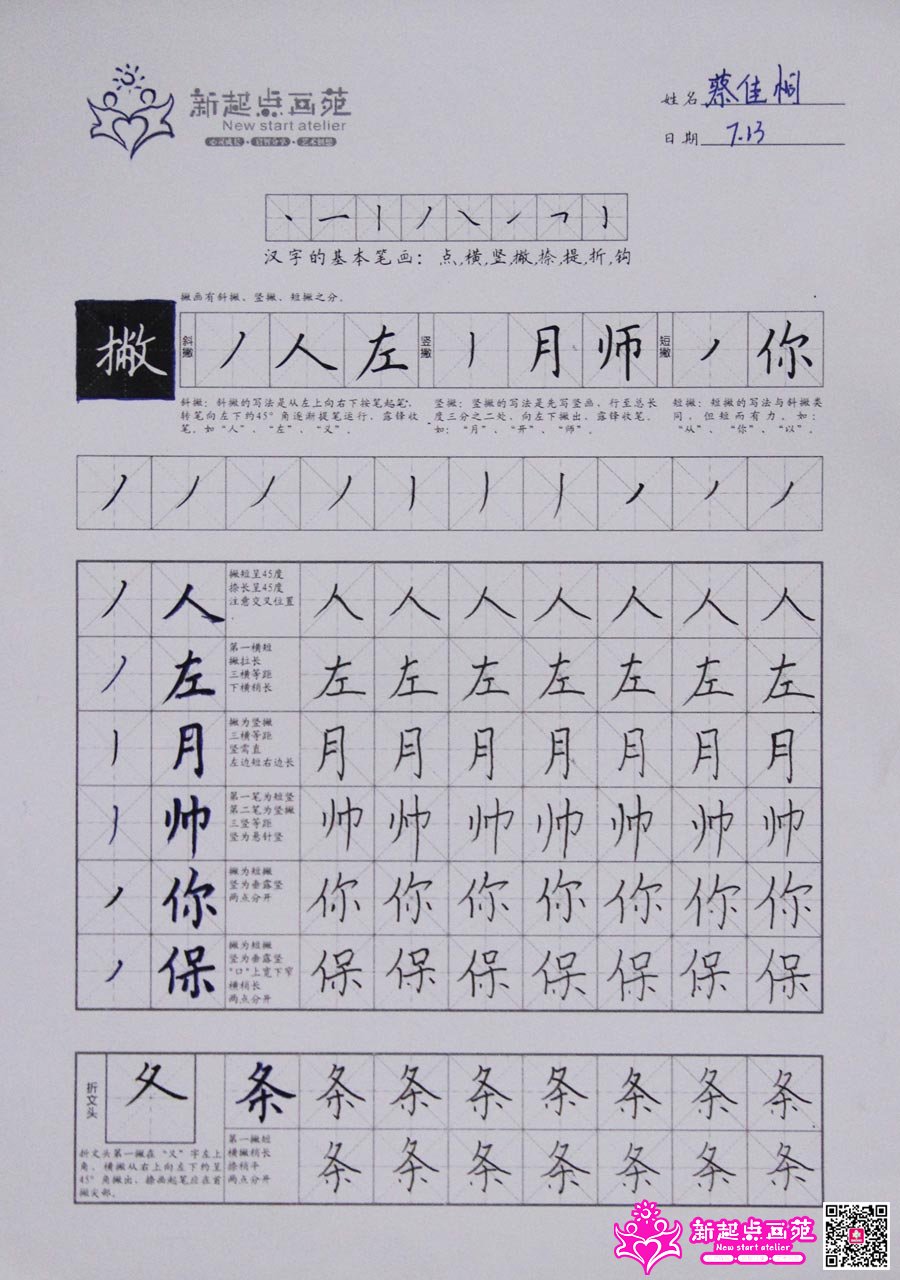 新起点画苑
New start atelier
姓名 蔡佳
日期 7.13
丶 一 丨 丿 ㇏ ㇀ ㇕ 亅
汉字的基本笔画：点,横,竖,撇,捺,提,折,钩
撇画有斜撇、竖撇、短撇之分。
撇 斜撇 丿 人 左 竖撇 丿 月 师 短撇 丿 你
斜撇：斜撇的写法是从左上向右下按笔起笔，
转笔向左下约45°角逐渐提笔运行，露锋收
笔。如“人”、“左”、“义”。
竖撇：竖撇的写法是先写竖画，行至总长
度三分之二处，向左下撇出，露锋收笔。
如：“月”、“开”、“师”。
短撇：短撇的写法与斜撇类
同，但短而有力。如：
“从”、“你”、“以”。
丿 丿 丿 丿 丿 丿 丿 丿 丿 丿
丿 人 人 人 人 人 人 人 人
撇短呈45度
捺长呈45度
注意交叉位置
丿 左 左 左 左 左 左 左 左
第一横短
撇拉长
三横等距
下横稍长
丿 月 月 月 月 月 月 月 月
撇为竖撇
三横等距
竖需直
左边短右边长
丿 帅 帅 帅 帅 帅 帅 帅 帅
第一笔为短竖
第二笔为竖撇
三竖等距
竖为悬针竖
丿 你 你 你 你 你 你 你 你
撇为短撇
竖为垂露竖
两点分开
丿 保 保 保 保 保 保 保 保
撇为短撇
竖为垂露竖
“口”上宽下窄
横稍长
两点分开
折文头 夂 条 条 条 条 条 条 条 条
折文头第一撇在“义”字左上
角，横撇从右上向左下约呈
45°角撇出，捺画起笔应在首
撇尖部。
第一撇短
横撇稍长
捺稍平
两点分开
条 条 条 条 条 条 条
新起点画苑
New start atelier